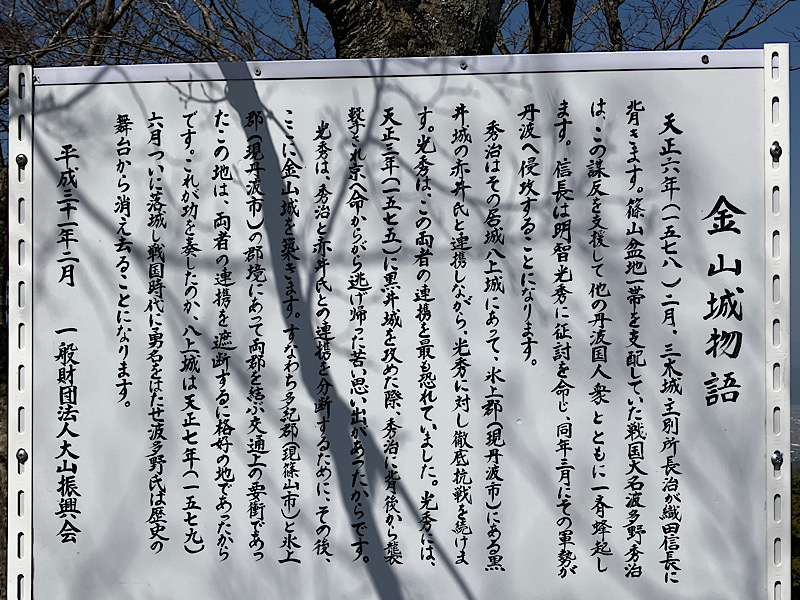 金山城物語
天正六年(一五七八)二月、三木城主別所長治が織田信長に
背きます。篠山盆地一帯を支配していた戦国大名波多野秀治
は、この謀反を支援して他の丹波国人衆とともに一斉蜂起し
ます。信長は明智光秀に征討を命じ、同年三月にその軍勢が
丹波へ侵攻することになります。
秀治はその居城八上城にあって、氷上郡(現丹波市)にある黒
井城の赤井氏と連携しながら、光秀に対し徹底抗戦を続けま
す。光秀は、この両者の連携を最も恐れていました。光秀には、
天正三年(一五七五)に黒井城を攻めた際、秀治に背後から襲
撃され京へ命からがら逃げ帰った苦い思い出があったからです。
光秀は、秀治と赤井氏との連携を分断するために、その後、
ここに金山城を築きます。すなわち多紀郡(現篠山市)と氷上
郡(現丹波市)の郡境にあって両郡を結ぶ交通上の要衝であっ
たこの地は、両者の連携を遮断するに格好の地であったから
です。これが功を奏したのか、八上城は天正七年(一五七九)
六月ついに落城し戦国時代に勇名をはたせ波多野氏は歴史の
舞台から消え去ることになります。
平成三十一年二月　一般財団法人大山振興会